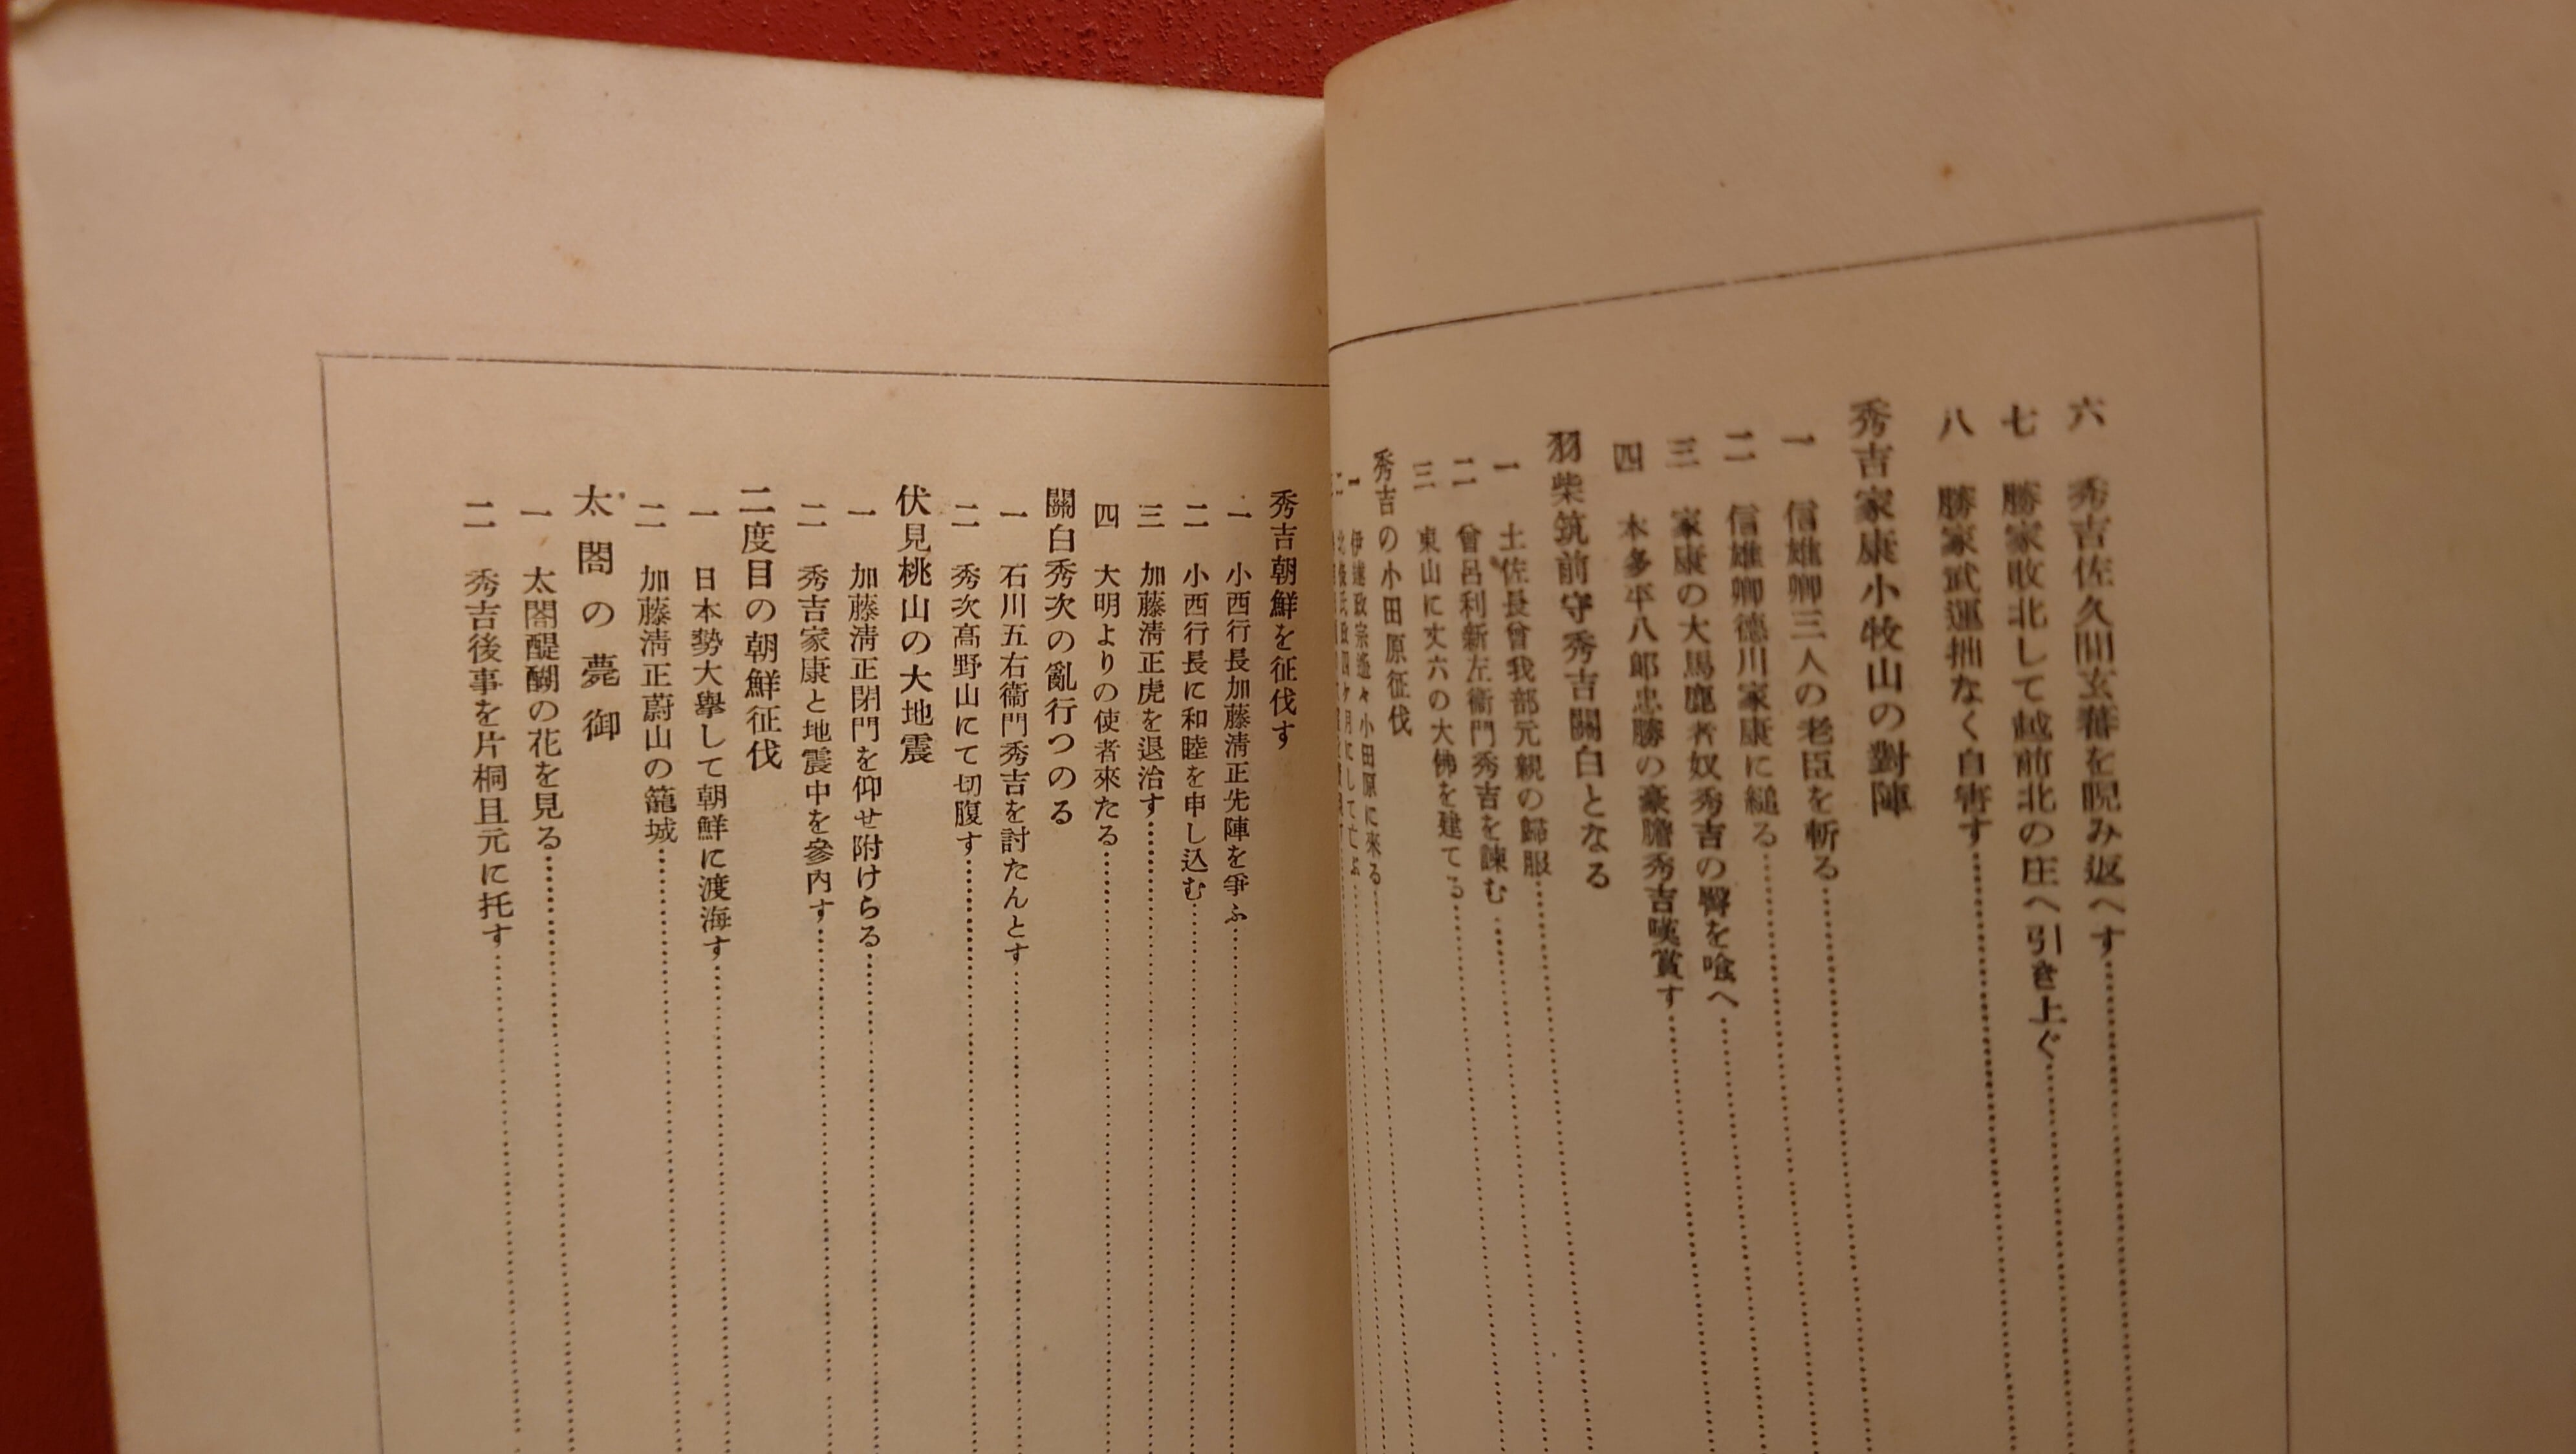 六 秀吉佐久間玄蕃を睨み返へす
七 勝家敗北して越前北の庄へ引き上ぐ
八 勝家武運拙なく自害す
秀吉家康小牧山の對陣
一 信雄卿三人の老臣を斬る
二 信雄卿德川家康に縋る
三 家康の大馬鹿者奴秀吉の臀を喰へ
四 本多平八郎忠勝の豪膽秀吉嘆賞す
羽柴筑前守秀吉關白となる
一 土佐長曾我部元親の歸服
二 曾呂利新左衞門秀吉を諫む
三 東山に丈六の大佛を建てる
秀吉の小田原征伐
一 伊達政宗遙々小田原に來る
二 北條氏政四ヶ月にして亡ぶ
秀吉朝鮮を征伐す
一 小西行長加藤淸正先陣を爭ふ
二 小西行長に和睦を申し込む
三 加藤淸正虎を退治す
四 大明よりの使者來たる
關白秀次の亂行つのる
一 石川五右衞門秀吉を討たんとす
二 秀次高野山にて切腹す
伏見桃山の大地震
一 加藤淸正閉門を仰せ附けらる
二 秀吉家康と地震中を參內す
二度目の朝鮮征伐
一 日本勢大擧して朝鮮に渡海す
二 加藤淸正蔚山の籠城
太閤の薨御
一 太閤醍醐の花を見る
二 秀吉後事を片桐且元に托す